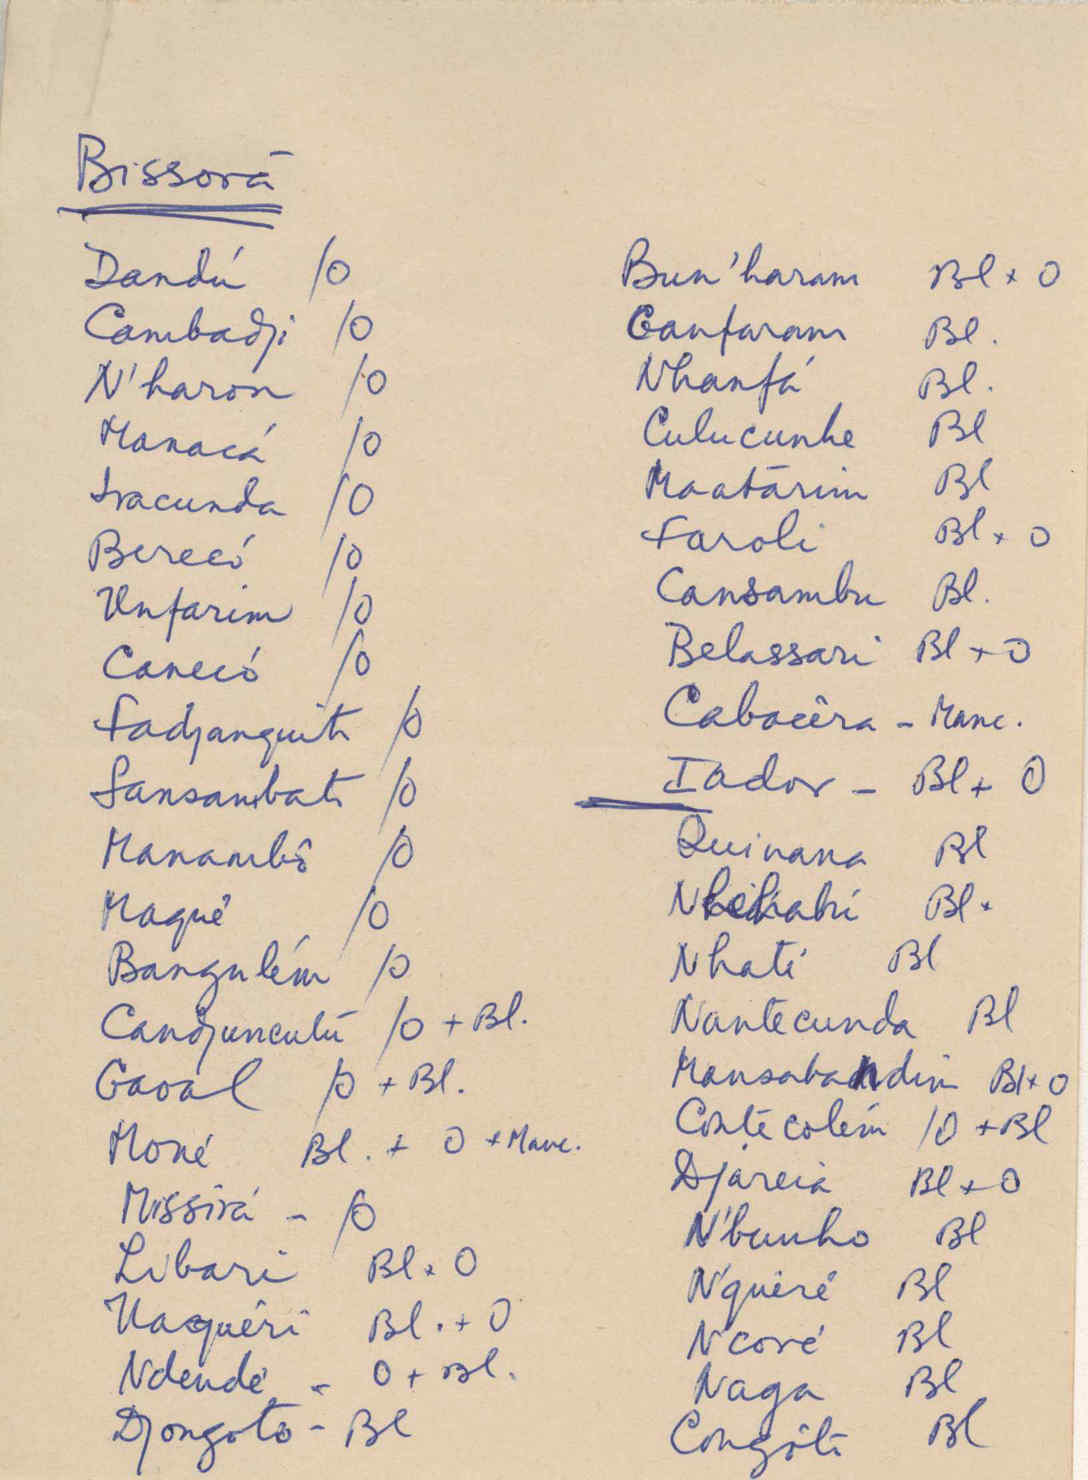 Bissorã
Dandú /O
Cambadji /O
N'haron /O
Manacá /O
Iracunda /O
Berecó /O
Unfarim /O
Canecó /O
Fadjanquito /O
Sansambato /O
Manambô /O
Maqué /O
Bangulém /O
Candjuncutú /O + Bl.
Gaoal /O + Bl.
Moné Bl. + O + Manc.
Missirá - /O
Libari Bl + O
Uaquéri Bl. + O
Ndendé - O + Bl.
Djongoto - Bl
Bun'haram Bl + O
Ganfaram Bl.
Nhanfá Bl.
Culucunhe Bl
Maatãrim Bl
Faroli Bl + O
Cansambu Bl.
Belassari Bl + O
Cabacêra - Manc.
Iador - Bl + O
Quinana Bl
Bl.
Nhati Bl
Nantecunda Bl
Mansabandim Bl + O
Contecolém /O + Bl
Djareia Bl + O
N'bunho Bl
N'quéré Bl
Ncoré Bl
Naga Bl
Congôti Bl